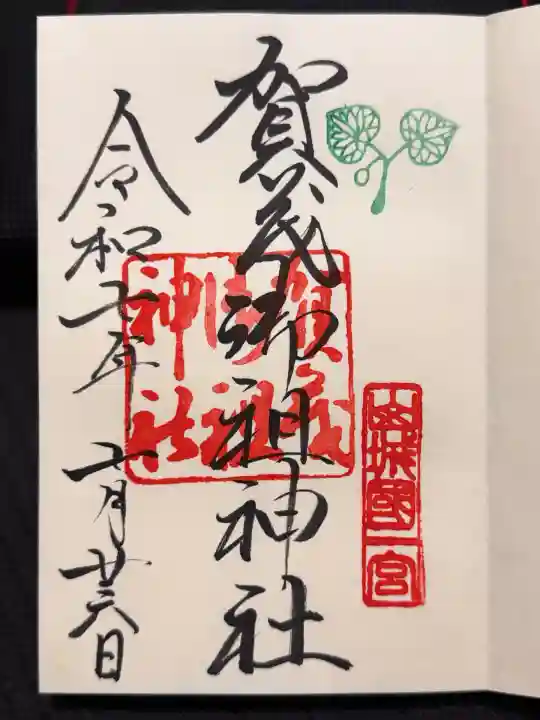 山城國一宮
賀茂御祖神社
賀茂御祖神社
令和七年七月廿六日